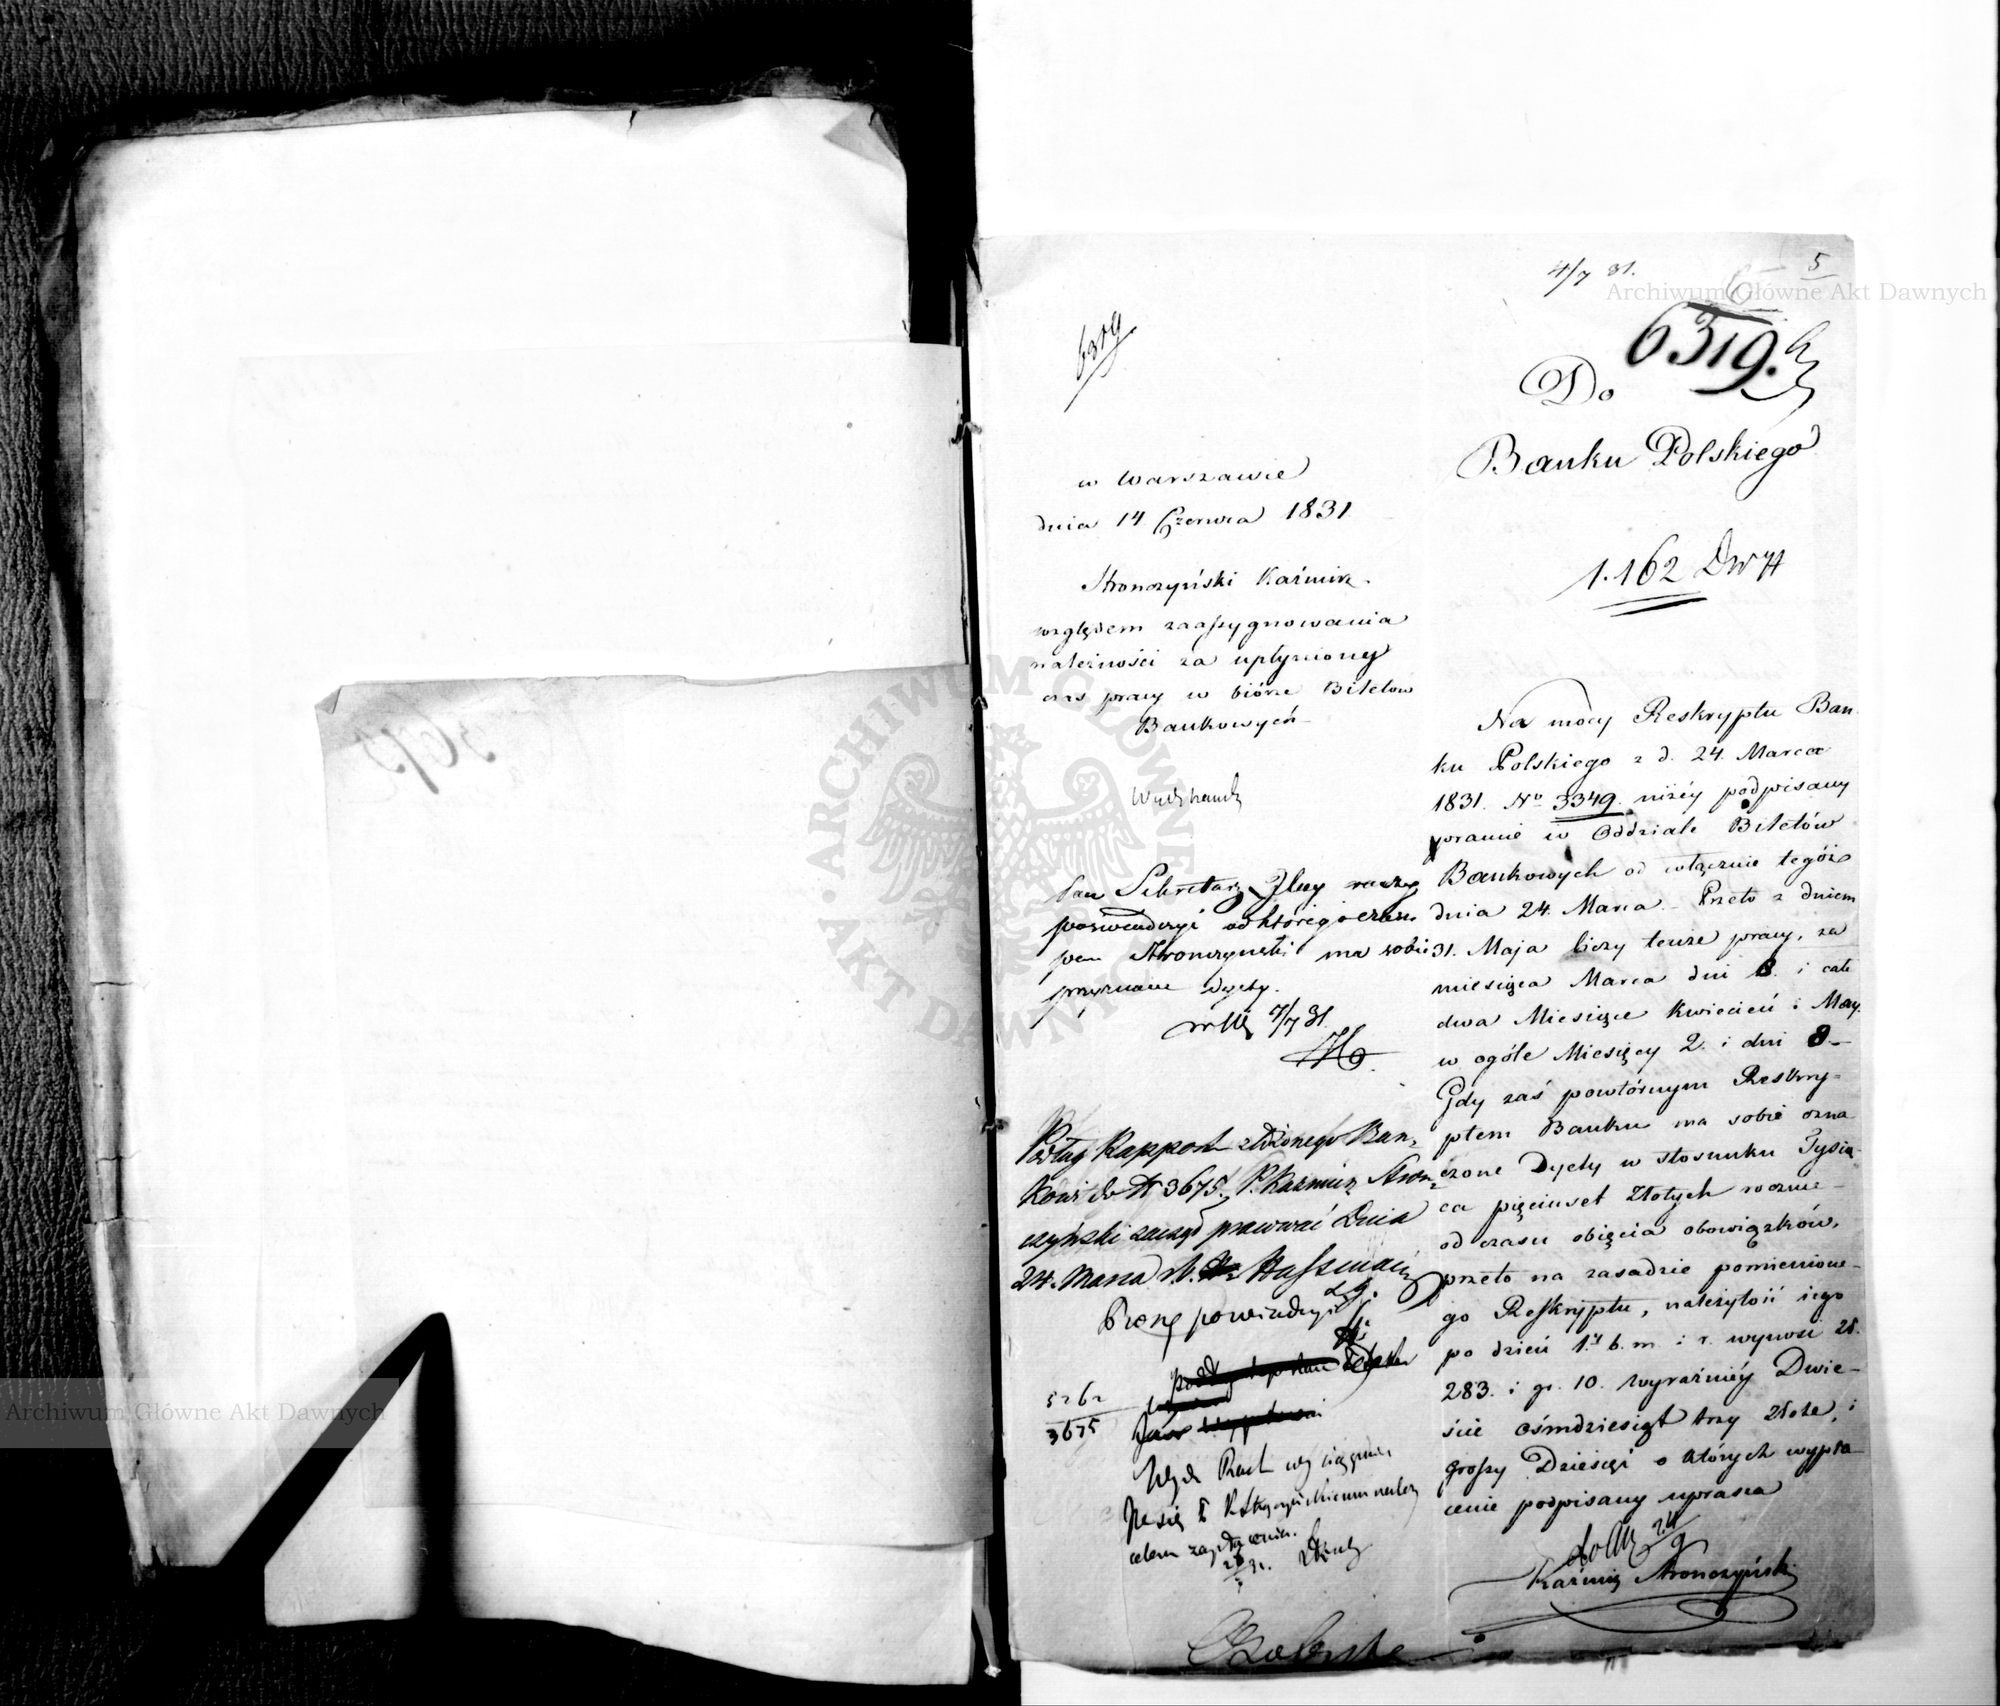 4/7 31.
5
6
6319.
6319
Do
Banku Polskiego
w Warszawie
dnia 14 Czerwca 1831
1.162
Stronczyński Kaźmirz.
względem zaassygnowania
należności za upłyniony
czas pracy w biórze Biletow
Bankowych
Na mocy Reskryptu Ban-
ku Polskiego z d. 24. Marca
1831. No 3349. niżéy podpisany
pracuie w Oddziale Biletów
Bankowych od włącznie tegóż
dnia 24. Marca. Przeto z dniem
31. Maja liczy tenże pracy, za
miesiąca Marca dni 8. i całe
dwa Miesiące Kwiecień i May.
w ogóle Miesięcy 2. i dni 8.
Gdy zaś powtórnym Reskry-
ptem Banku ma sobie ozna
czone Dyety w stosunku Tysią-
ca pięciuset Złotych rocznie
od czasu obięcia obowiązków,
przeto na zasadzie pomienione-
go Reskryptu, należytość iego
po dzień 1. b. m i r. wynosi zł.
283. i gr. 10. wyraźniéy Dwie-
ście ośmdziesiąt trzy złote, i
groszy Dziesięć o których wypła-
cenie podpisany uprasza
Kaźmirz Stronczyński
Pan Sekretarz raczy
poświadczyć od którego czasu
pan Stronczyński ma sobie
przyznane dyety.
7/7 31.
Podług Rapportu złożonego Ban-
kowi do N 3675. P. Kazmirz Stron-
czyński zaczął pracować Dnia
24. Marca
Proszę poświadczyć
5262
3675
Wyd. Rach
celem zapłacenia.
Archiwum Główne Akt Dawnych
Archiwum Główne Akt Dawnych
ARCHIWUM GŁÓWNE AKT DAWNYCH